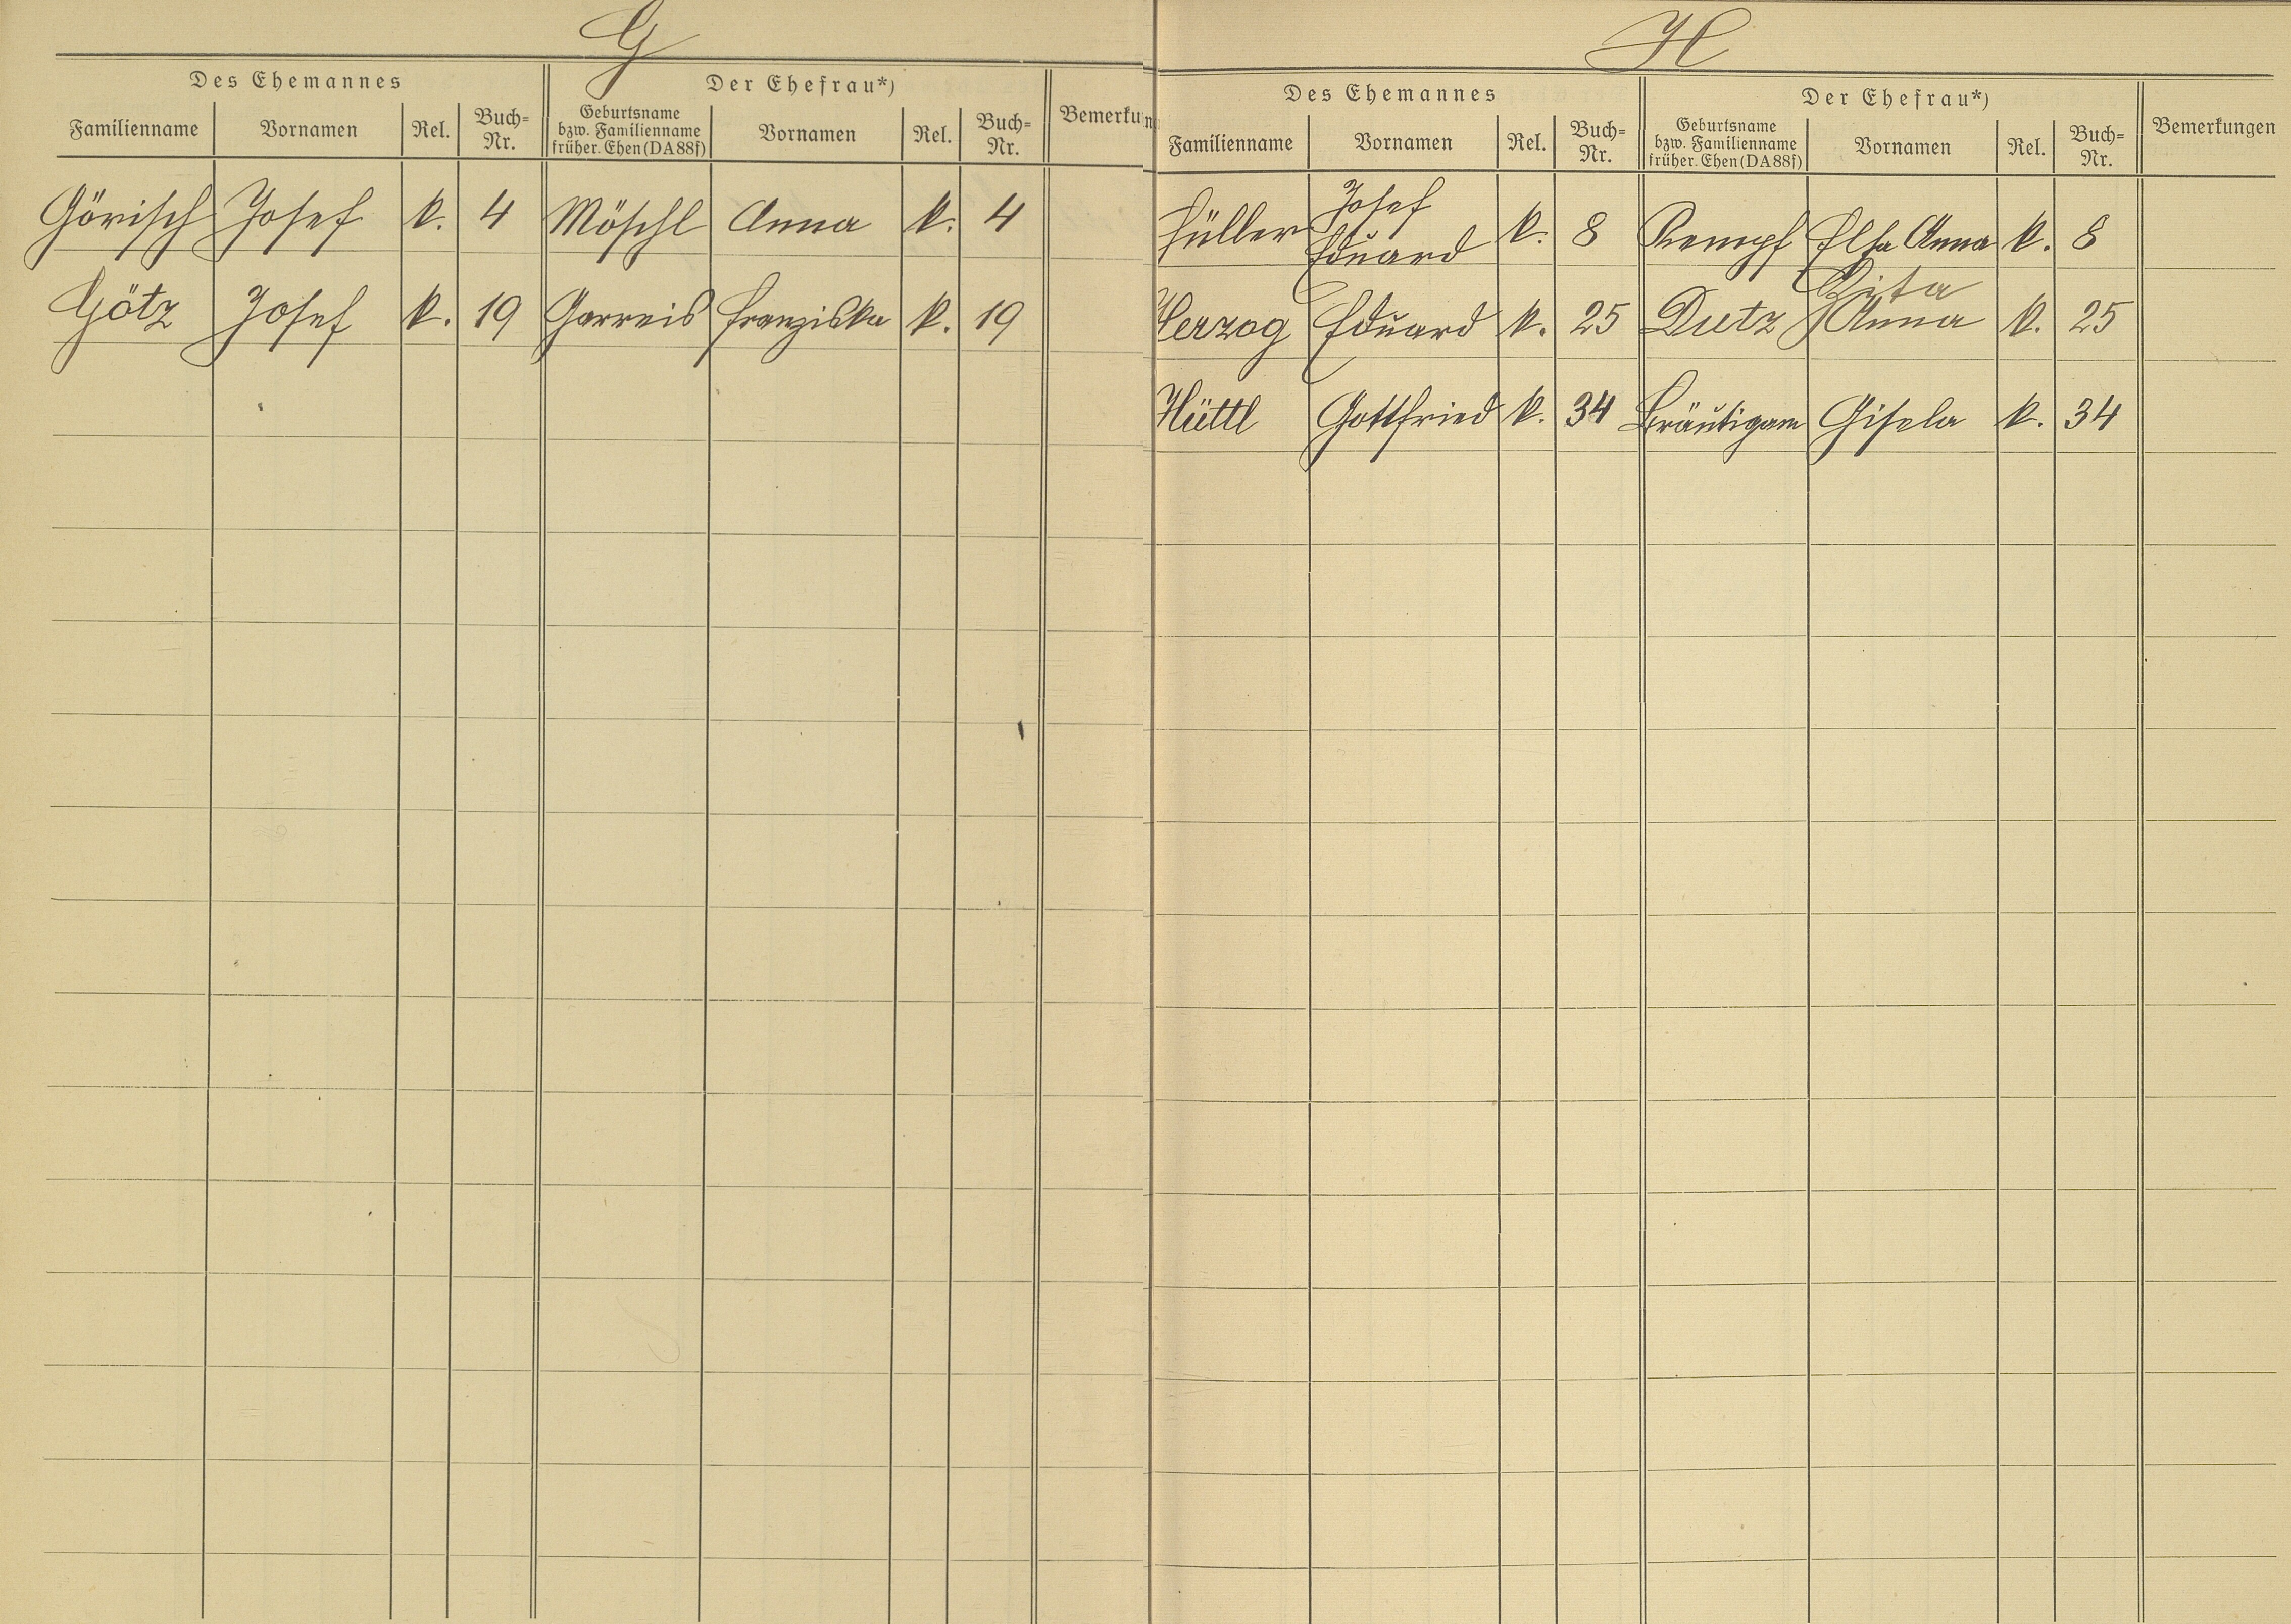 G
Des Ehemannes Der Ehefrau*)
Familienname Vornamen Rel. Buch-Nr. Geburtsname bzw. Familienname früher. Ehen (DA 88f) Vornamen Rel. Buch-Nr. Bemerkun
Görisch Josef k. 4 Möschl Anna k. 4
Götz Josef k. 19 Garreis Franziska k. 19
H
Des Ehemannes Der Ehefrau*)
Familienname Vornamen Rel. Buch-Nr. Geburtsname bzw. Familienname früher. Ehen (DA 88f) Vornamen Rel. Buch-Nr. Bemerkungen
Füller Josef Eduard k. 8 Kempf Elsa Anna k. 8
Herzog Eduard k. 25 Dietz Zita Anna k. 25
Hüttl Gottfried k. 34 Bräutigam Gisela k. 34